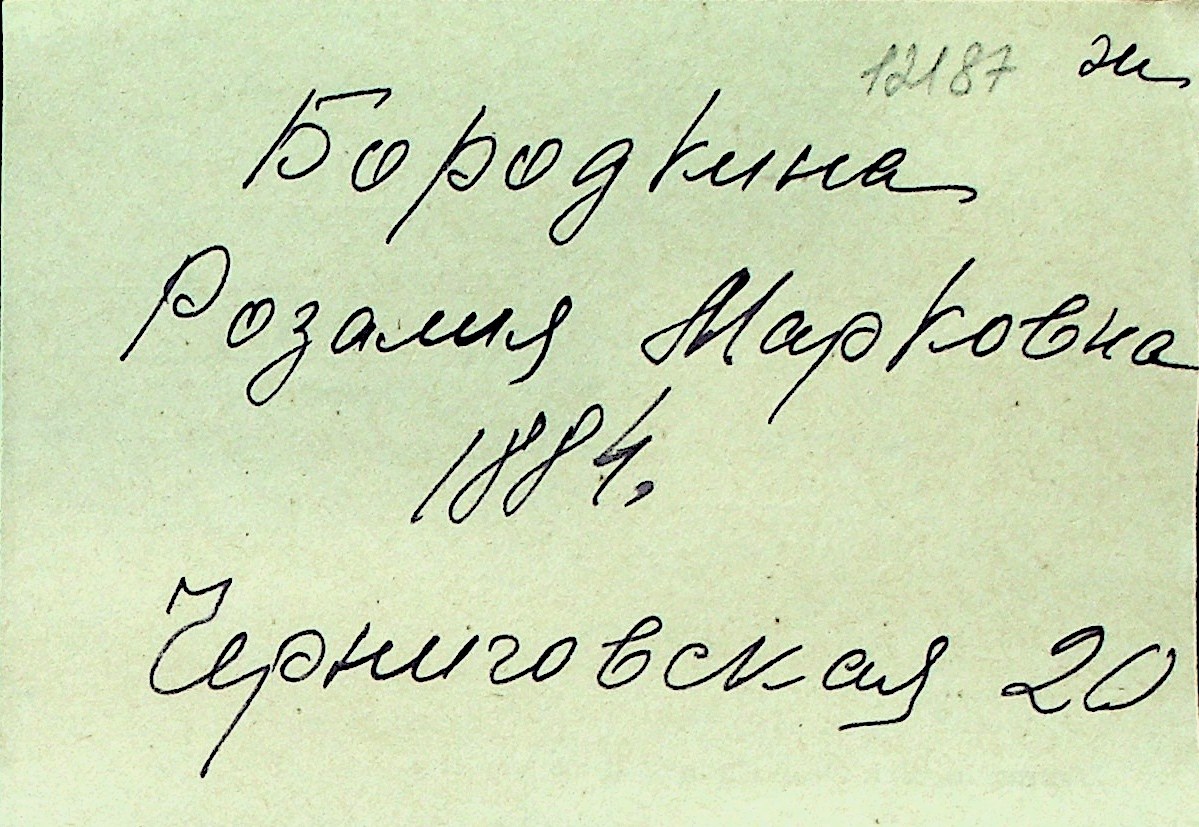 12187 ж
Бородкина
Розалия Марковна
1884.
Черниговская 20